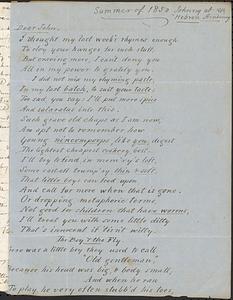 Summer of 1850 Johnny at
Hebron Academy
Dear John,
I thought my last week's rhymes enough
To cloy your hunger for such stuff.
But craving more, I can't deny you
All in my power to gratify you.
I did not mix my rhyming paste,
In my last batch, to suit your taste.
For sad you say: I'll put more spice
And into this
Such grave old chaps as I am now,
Am apt not to remember how
Young nincompoops like you, digest
The lightest cheapest cookery best.
I'll try to find in mem'ry's loft,
Some rest-all trump'ry thin & soft,
That little boys can feed upon
And call for more when that is gone.
Or dropping metaphoric forms,
Not good for children that have worms,
I'll treat you with some little ditty
That's innocent if tisn't witty.
The Boy & the Fly.
There was a little boy they used to call
"Old gentleman,"
Because his head was big & body small,
And when he ran
To play, he very often stubb'd his toes,